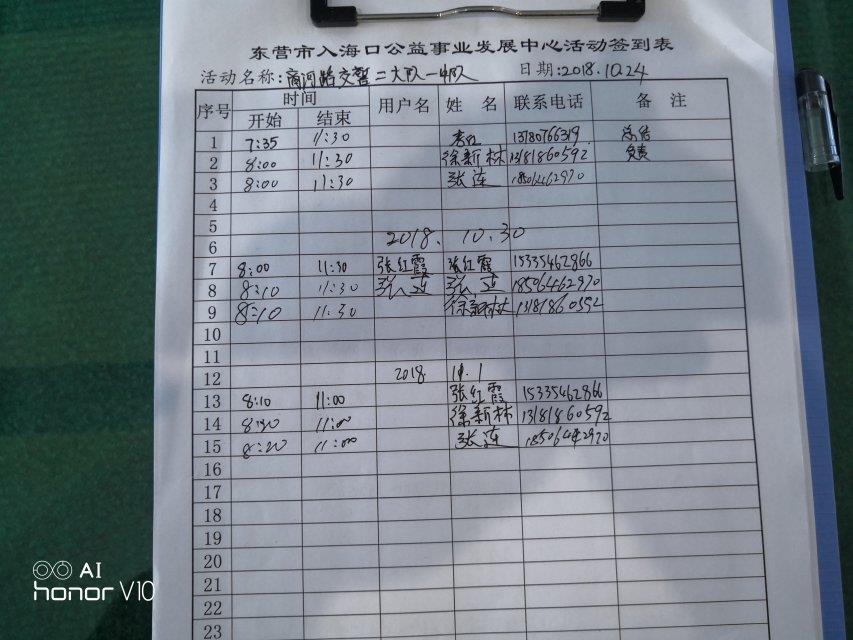 东营市入海口公益事业发展中心活动签到表
活动名称:商河路交警二大队一中队 日期:2018.10.24
序号 时间 用户名 姓 名 联系电话 备 注
开始 结束
1 7:35 11:30 13780766319 总结
2 8:00 11:30 徐新林 13181860592 负责
3 8:00 11:30 张莲 18506462970
4
5
6 2018. 10.30
7 8:00 11:30 张红霞 张红霞 15335462866
8 8:10 11:30 张莲 张莲 18506462970
9 8:10 11:30 徐新林 13181860592
10
11
12 2018 11.1
13 8:10 11:00 张红霞 15335462866
14 8:20 11:00 徐新林 13181860592
15 8:20 11:00 张莲 18506462970
16
17
18
19
20
21
22
23
AI
honor V10